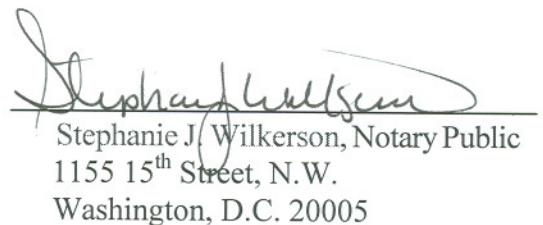 Stephanie J. Wilkerson
Stephanie J. Wilkerson, Notary Public
1155 15th Street, N.W.
Washington, D.C. 20005